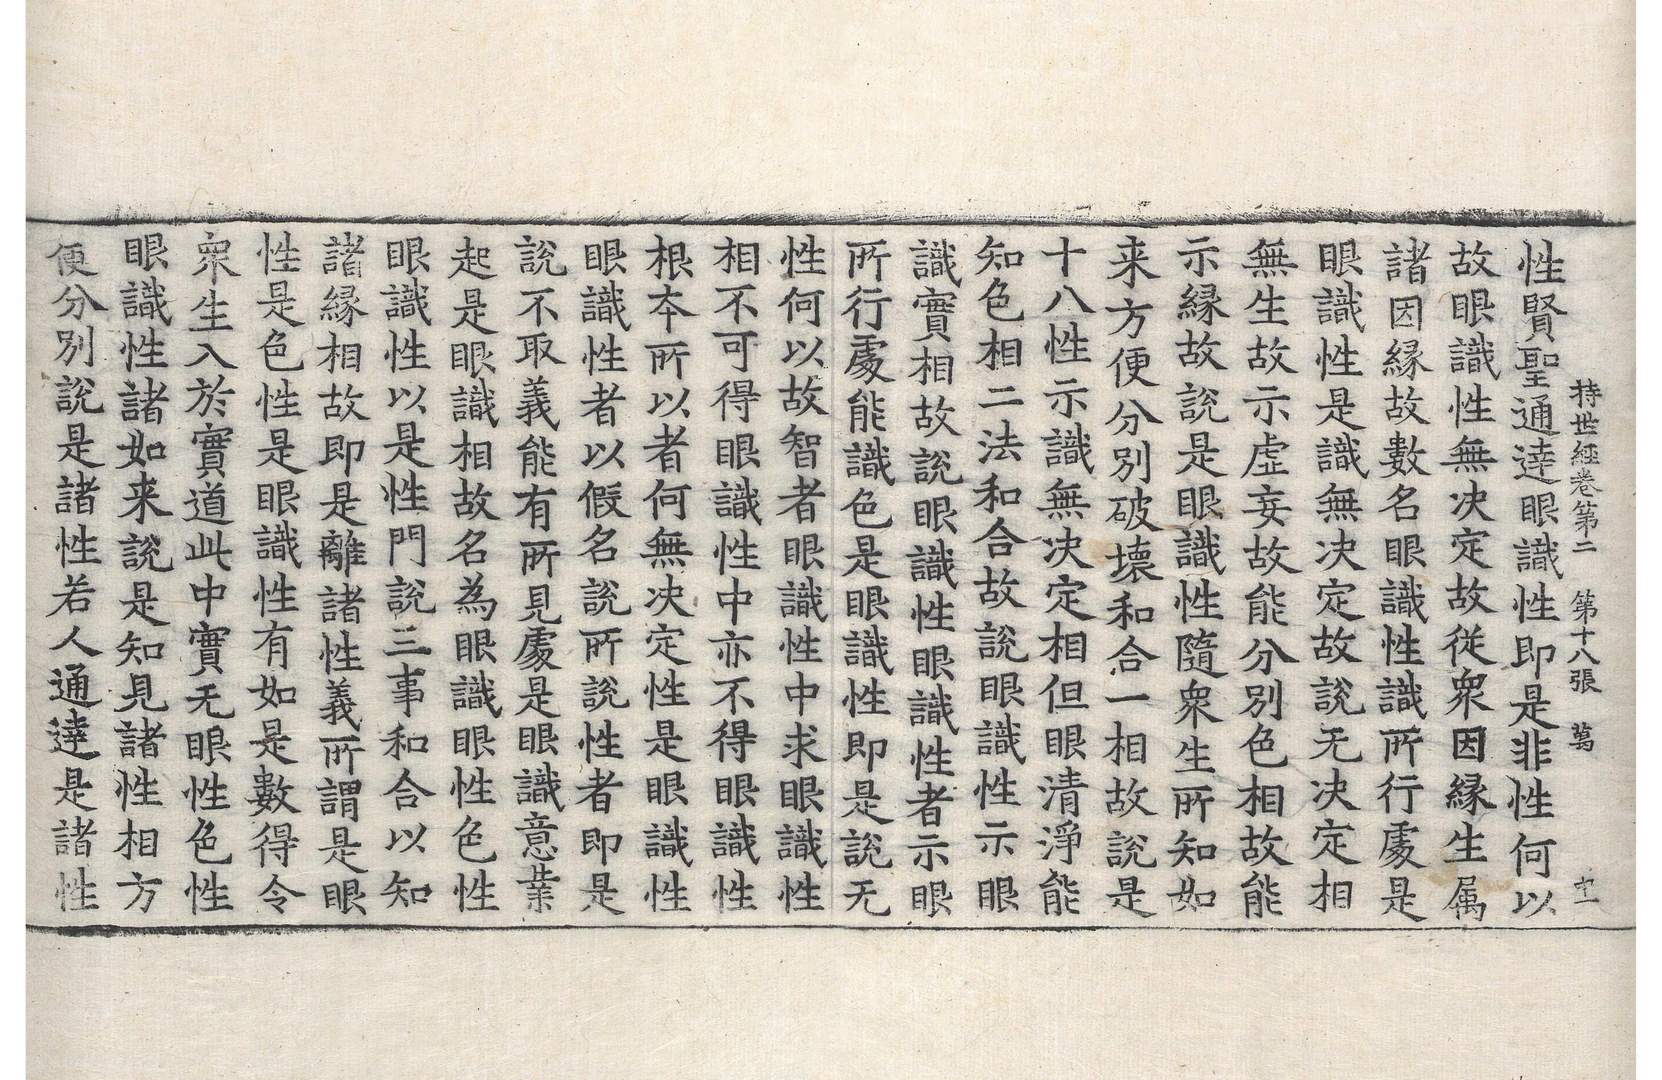 持世経卷第二 第十八張 萬
性賢聖通達眼識性即是非性何以
故眼識性無决定故從衆因縁生属
諸因縁故數名眼識性識所行處是
眼識性是識無决定故説无决定相
無生故示虚妄故能分别色相故能
示縁故説是眼識性隨衆生所知如
来方便分别破壊和合一相故說是
十八性示識無决定相但眼清淨能
知色相二法和合故說眼識性示眼
識實相故説眼識性眼識性者示眼
所行處能識色是眼識性即是說无
性何以故智者眼識性中求眼識性
相不可得眼識性中亦不得眼識性
根夲所以者何無决定性是眼識性
眼識性者以假名說所說性者即是
說不取義能有所見處是眼識意業
起是眼識相故名為眼識眼性色性
眼識性以是性門說三事和合以知
諸縁相故即是離諸性義所謂是眼
性是色性是眼識性有如是數得令
衆生入於實道此中實无眼性色性
眼識性諸如来說是知見諸性相方
便分别説是諸性若人通達是諸性